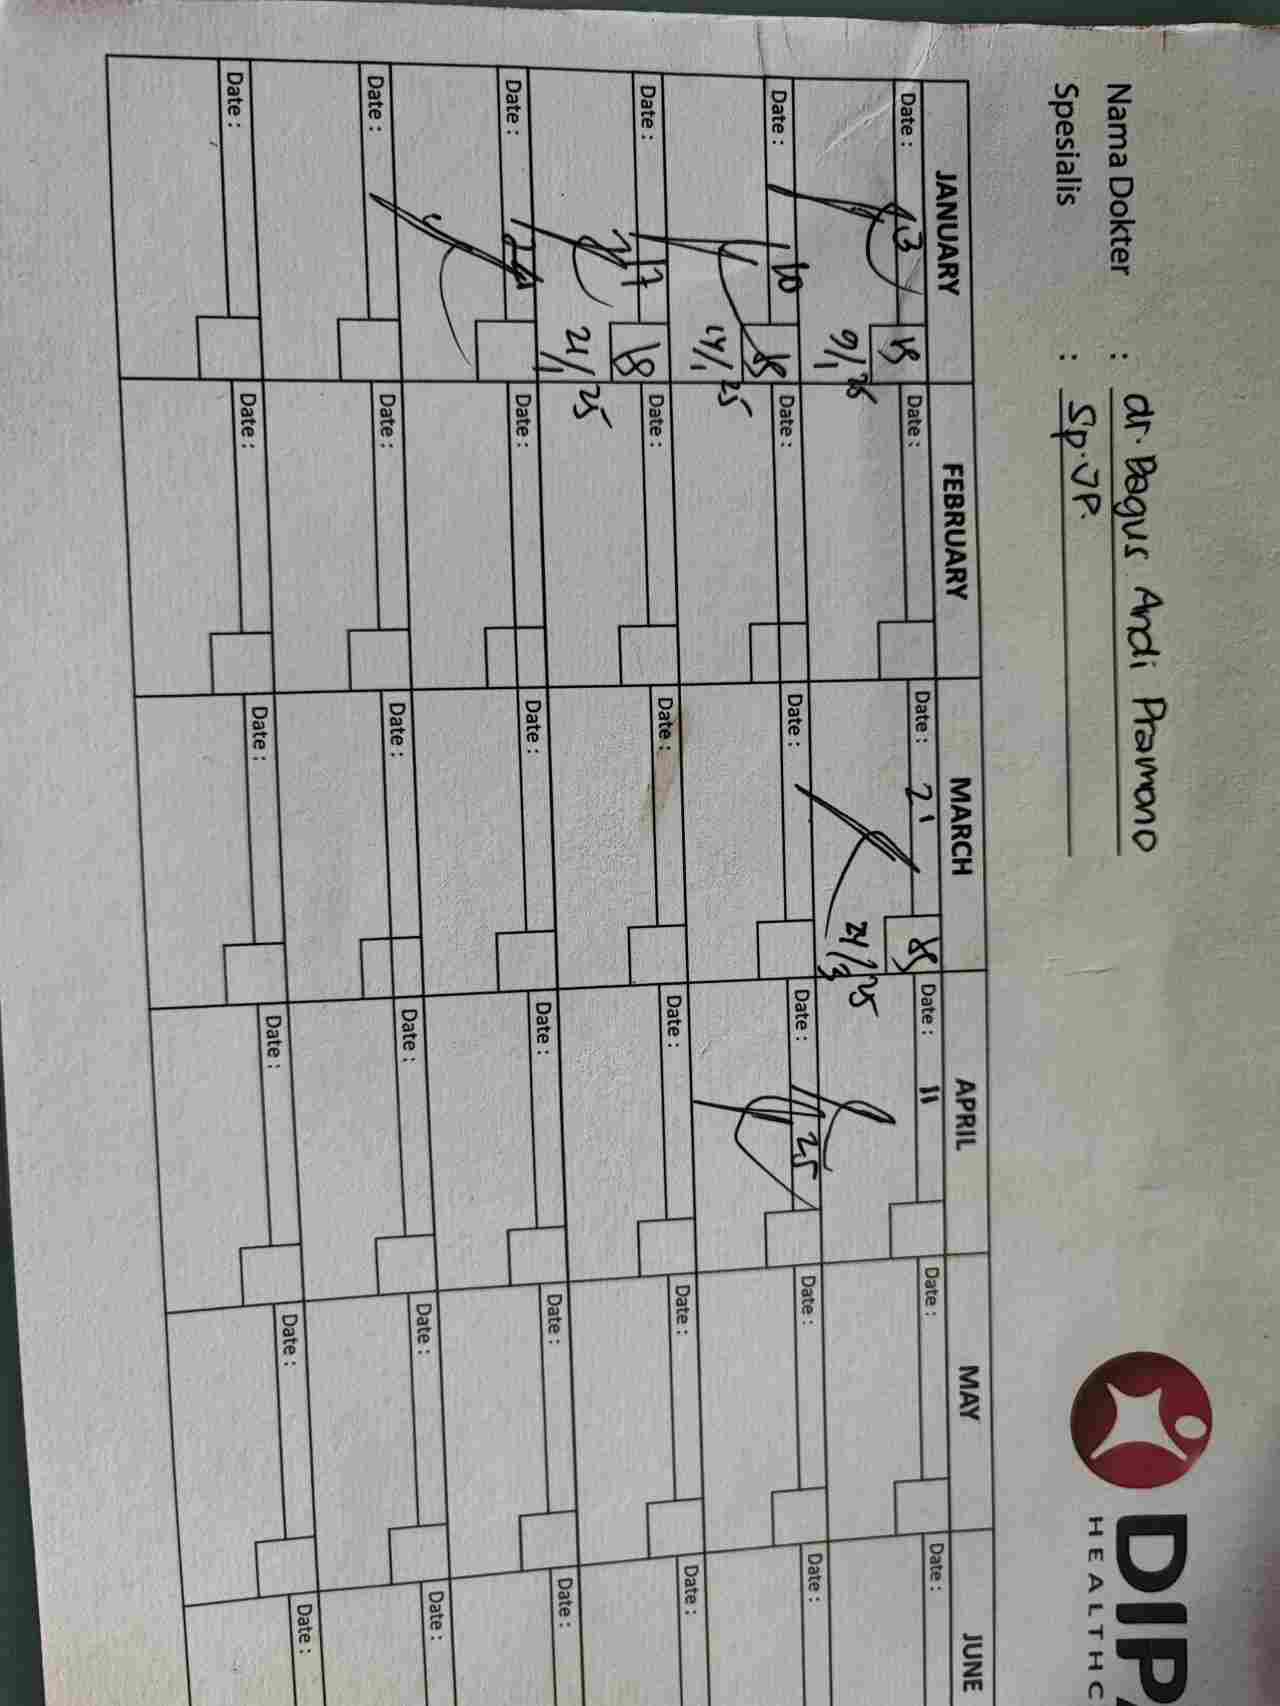 DIP
HEALTHC
Nama Dokter : dr. Bagus Andi Pramono
Spesialis : Sp.JP.
JANUARY FEBRUARY MARCH APRIL MAY JUNE
Date : 3 Date : Date : 21 Date : 11 Date : Date :
9/1 25 24/3 25
Date : 10 Date : Date : Date : 25 Date : Date :
14/1 25
Date : 17 Date : Date : Date : Date : Date :
21/1 25
Date : 24 Date : Date : Date : Date : Date :
Date : Date : Date : Date : Date : Date :
Date : Date : Date : Date : Date : Date :